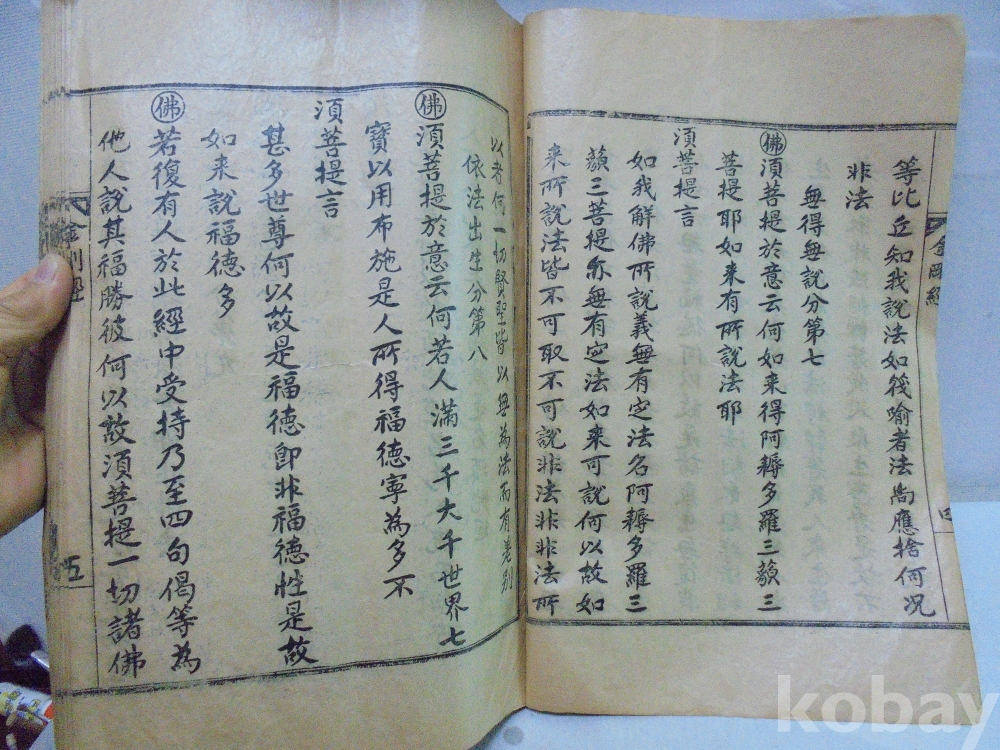 等比丘知我說法如筏喻者法尙應捨何况
非法
無得無說分第七
佛 須菩提於意云何如来得阿耨多羅三藐三
菩提耶如来有所說法耶
須菩提言
如我解佛所說義無有定法名阿耨多羅三
藐三菩提亦無有定法如来可說何以故如
来所說法皆不可取不可說非法非非法所
金剛經
四
以者何一切賢聖皆以無為法而有差別
依法出生分第八
佛 須菩提於意云何若人滿三千大千世界七
寶以用布施是人所得福德寧為多不
須菩提言
甚多世尊何以故是福德即非福德性是故
如来說福德多
佛 若復有人於此經中受持乃至四句偈等為
他人說其福勝彼何以故須菩提一切諸佛
金剛經
五
kobay